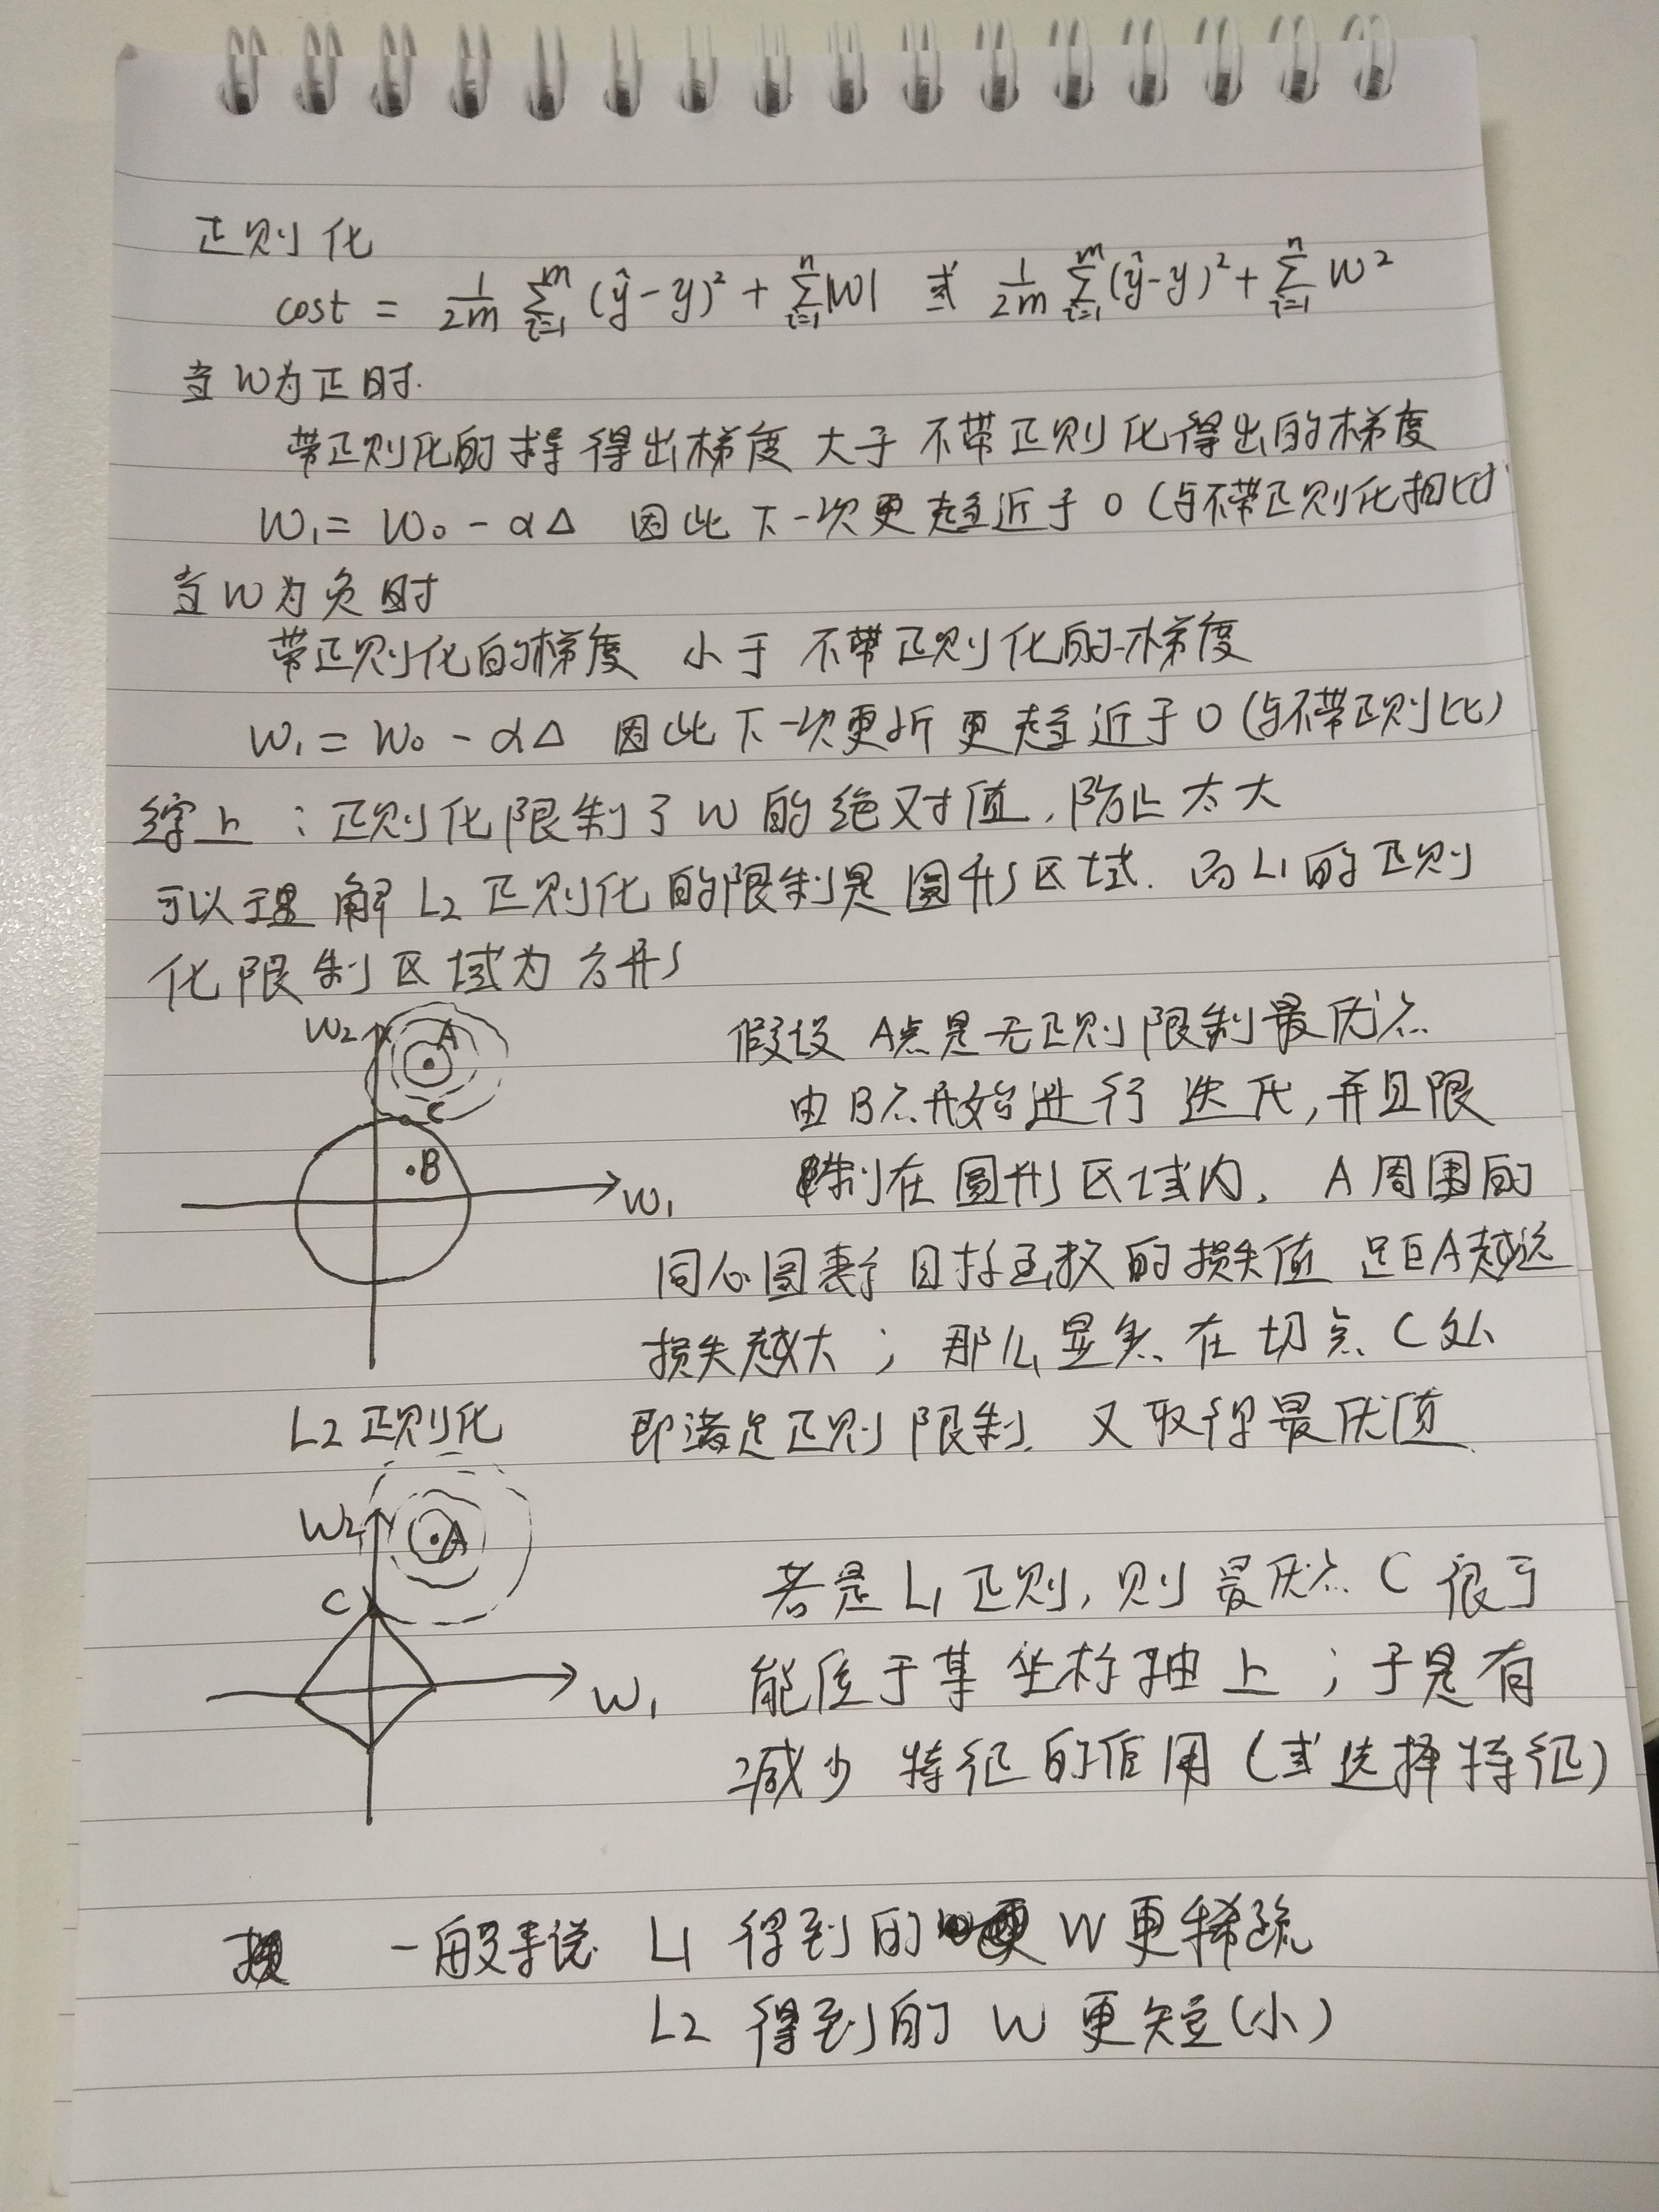 正则化
cost = 1/2m ∑_{i=1}^{m} (ŷ-y)² + ∑_{i=1}^{n} |W| 或 1/2m ∑_{i=1}^{m} (ŷ-y)² + ∑_{i=1}^{n} W²
当W为正时.
带正则化的求导 得出梯度 大于 不带正则化得出的梯度
W₁ = W₀ - αΔ 因此下一次更趋近于 0 (与不带正则化相比)
当W为负时
带正则化的梯度 小于 不带正则化的梯度
W₁ = W₀ - αΔ 因此下一次更新更趋近于0 (与不带正则比)
综上 : 正则化限制了W的绝对值,防止太大
可以理解L2正则化的限制是圆形区域. 而L1的正则
化限制区域为方形
W2 A
C
B
W₁
假设 A点是无正则限制最优点
由B点开始进行迭代,并且限
制在圆形区域内, A周围的
同心圆表示目标函数的损失值 距A越远
损失越大 ; 那么显然在切点C处
即满足正则限制 又取得最优值
L2正则化
W2 A
C
W₁
若是L1正则, 则最优点C很可
能位于某坐标轴上 ; 于是有
减少特征的作用 (或选择特征)
一般来说 L1 得到的 W更稀疏
L2 得到的 W 更短(小)